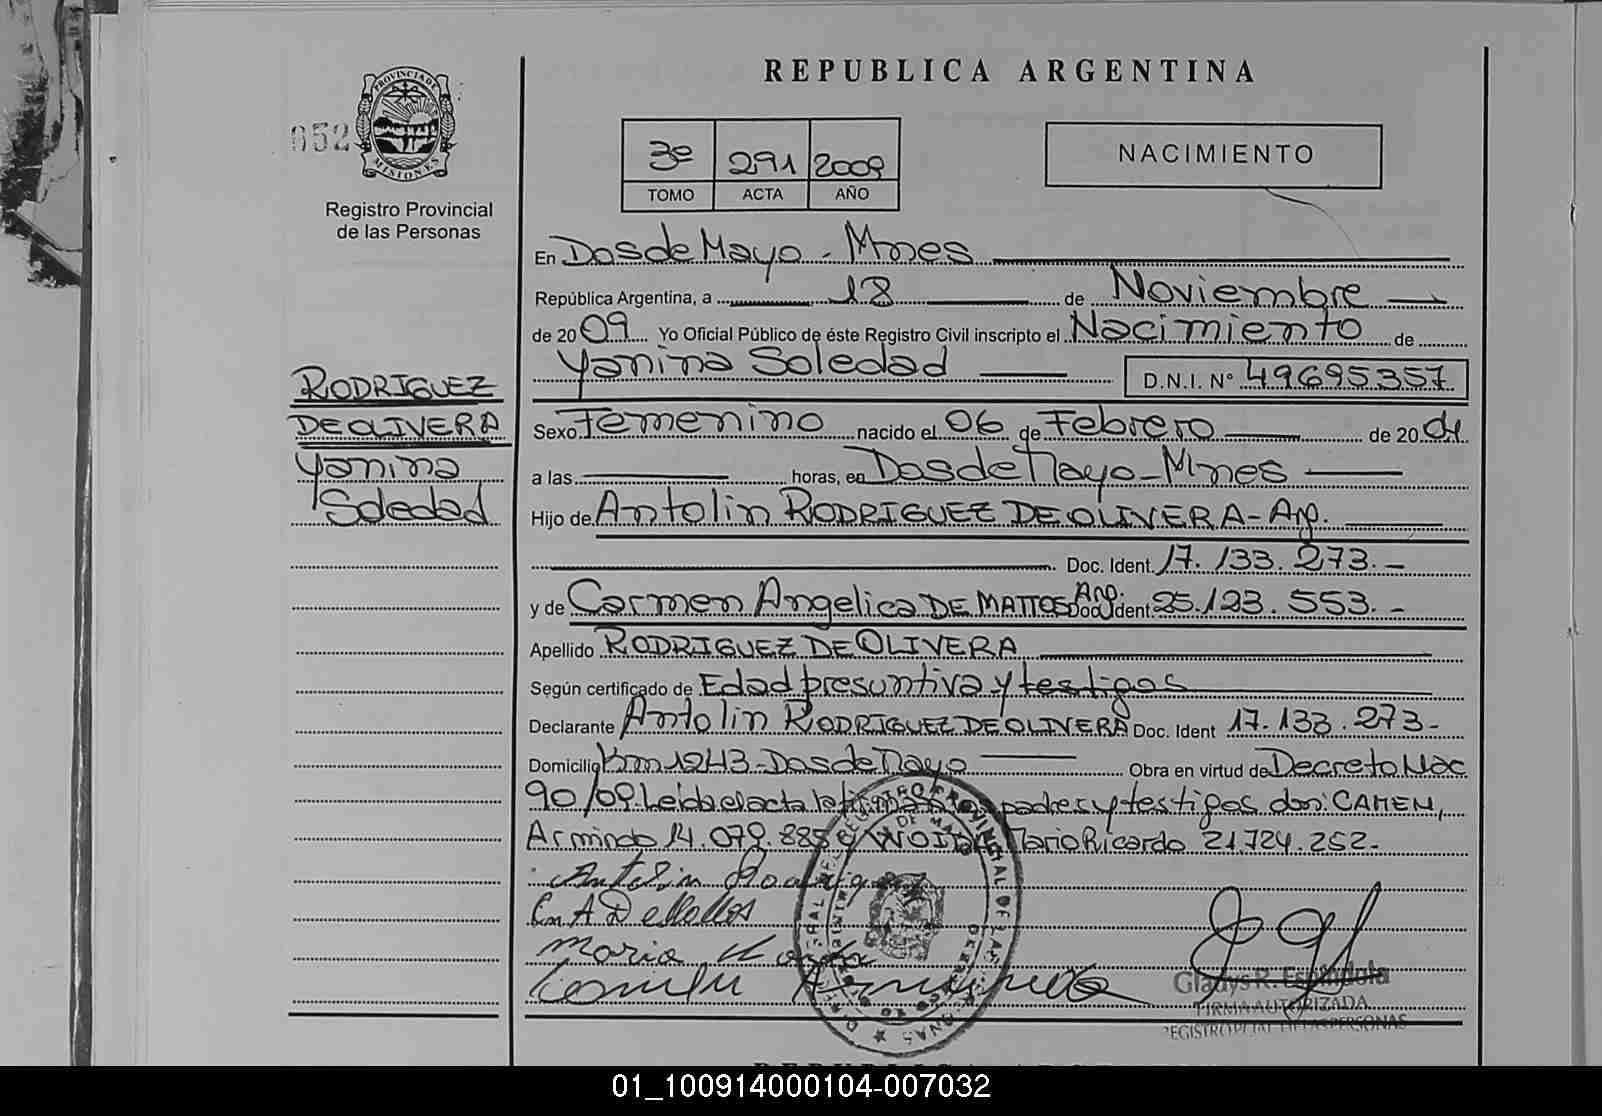 REPUBLICA ARGENTINA
PROVINCIA DE MISIONES
652
Registro Provincial
de las Personas
3º 291 2009
TOMO ACTA AÑO
NACIMIENTO
En Dos de Mayo - Mnes
República Argentina, a 18 de Noviembre
de 2009 Yo Oficial Público de éste Registro Civil inscripto el Nacimiento de
Yanina Soledad D.N.I. Nº 49695357
RODRIGUEZ
DE OLIVERA
Yanina
Soledad
Sexo Femenino nacido el 06 de Febrero de 2004
a las horas, en Dos de Mayo - Mnes
Hijo de Antolin RODRIGUEZ DE OLIVERA - Arg.
Doc. Ident. 17.133.273.-
y de Carmen Angelica DE MATTOS Arg. Doc. Ident. 25.123.553.-
Apellido RODRIGUEZ DE OLIVERA
Según certificado de Edad presuntiva y testigos
Declarante Antolin RODRIGUEZ DE OLIVERA Doc. Ident 17.133.273-
Domicilio Km 1243 - Dos de Mayo Obra en virtud de Decreto Nac
90/09. Leida el acta la firman los padres y testigos don: CAMEN,
Armindo 14.079.885 y Mario Ricardo 21.724.252-
Antolin Rodriguez
Mario
Gladys R. Espíndola
FIRMA AUTORIZADA
REGISTRO PCIAL. DE LAS PERSONAS
REPUBLICA ARGENTINA
01_100914000104-007032